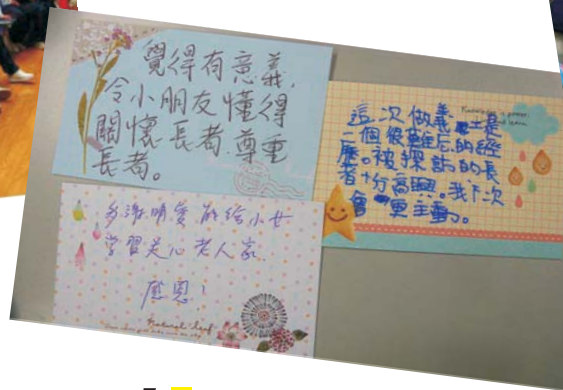 覺得有意義,
令小朋友懂得
關懷長者尊重
長者。
這次做義工是
一個很難忘的經
歷。被探訪的長
者十分高興。我下次
會更主動。
多謝明愛 給小女
學習关心老人家
感恩!
Natural leaf